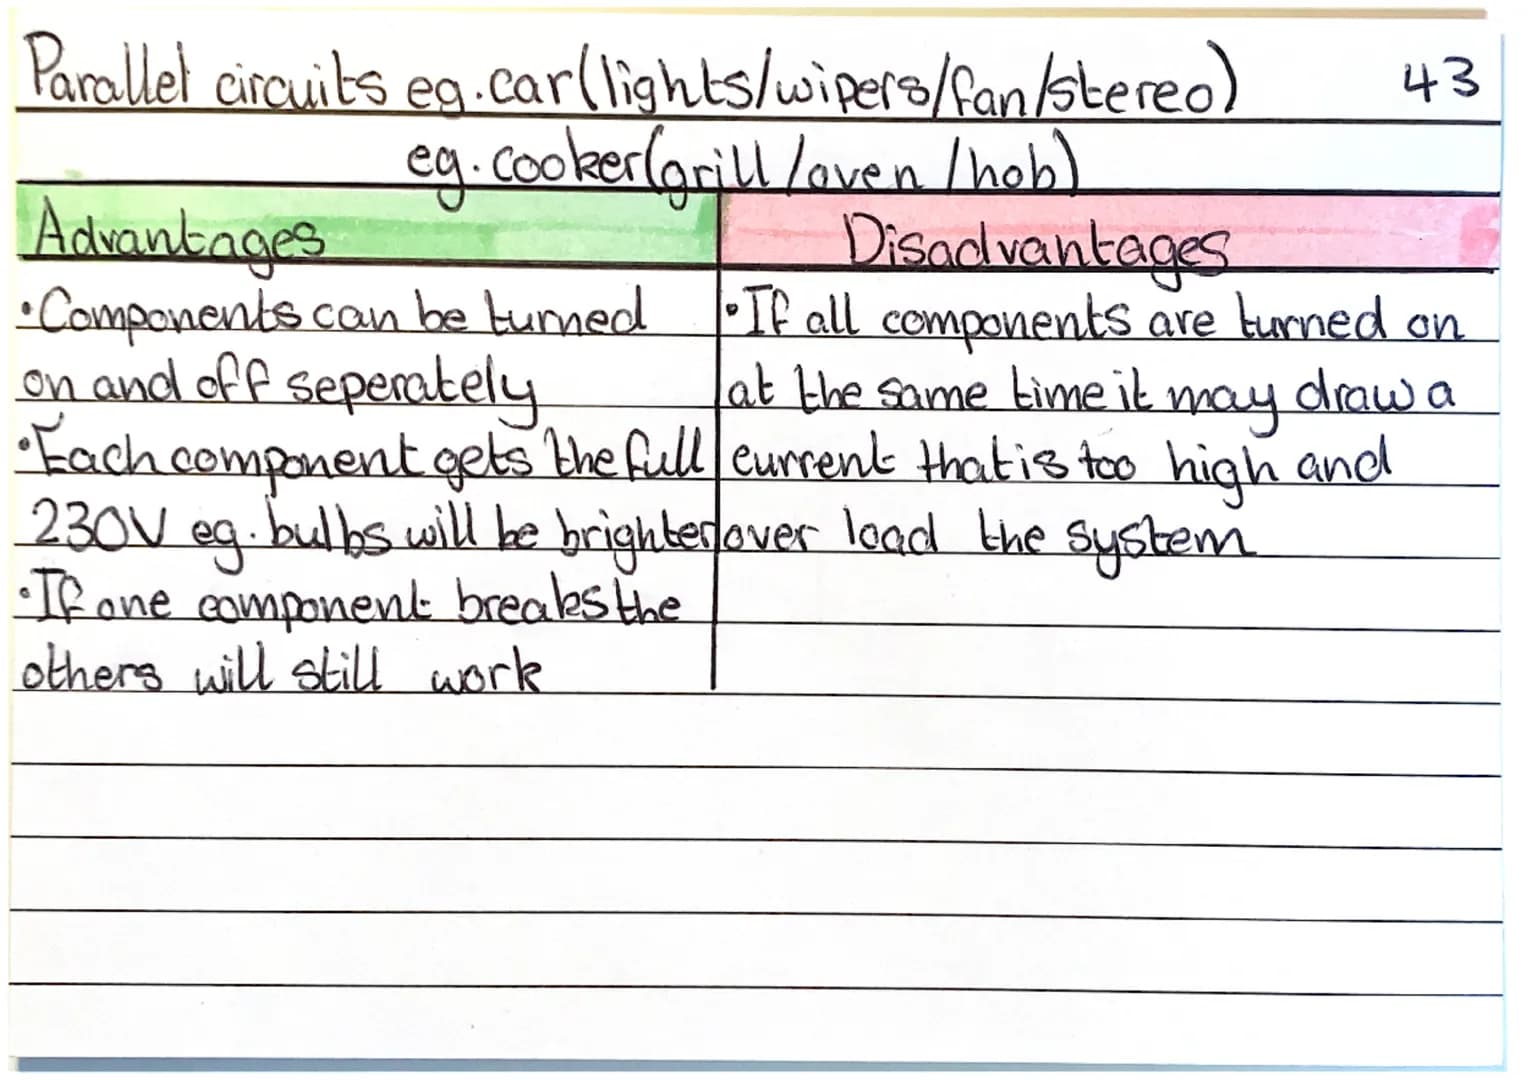 Parallel circuits eg.car(lights/wipers/fan/stereo) 43
eg.cooker(grill/oven/hob)
Advantages
•Components can be turned
on and off seperately
•Each component gets the full
230V eg. bulbs will be brighter
•If one component breaks the
others will still work
Disadvantages
•If all components are turned on
at the same time it may draw a
current that is too high and
over load the system